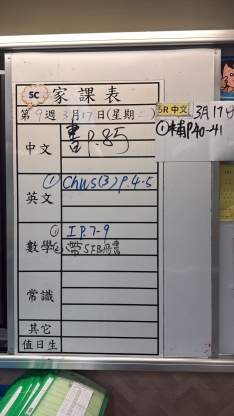 5C 家課表
第9週 3月17日(星期二)
中文 書P.85
英文 ① Chws(3) P.4-5
數學 ① I P.7-9
② 帶5下B冊書
常識
其它
值日生
5R 中文 3月17日
① 補P.40-41